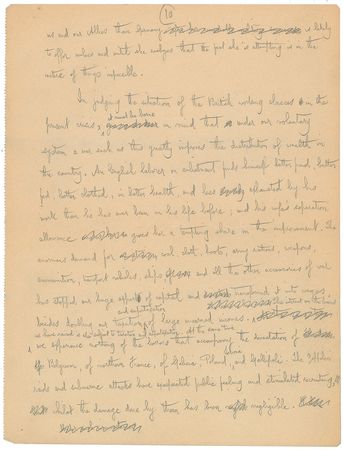 10
us and our Allies than Germany is likely
to offer unless and until she realizes that the feat she is attempting is in the
nature of things impossible.
In judging the situation of the British working classes in the
present crisis, it must be borne in mind that under our voluntary
system a war such as this greatly improves the distribution of wealth in
the country. An English laborer or artisan finds himself better paid, better
fed, better clothed, in better health and less exhausted by his
work than he has ever been in his life before; and his wife's separation
allowance gives her a startling share in the improvement. The
enormous demand for coal, cloth, boots, army rations, weapons,
ammunition, transport vehicles, ships, and all the other accessories of war
has tapped our huge of capital and transformed it into wages,
besides doubling our taxation of large unearned incomes.
At the same time
we experience nothing of the horrors that accompany the devastation of
Belgium, of northern France, of Galicia, Poland, and Gallipoli. The Zeppelin
raids and submarine attacks have exasperated public feeling and stimulated recruiting,
whilst the damage done by them has been negligible.